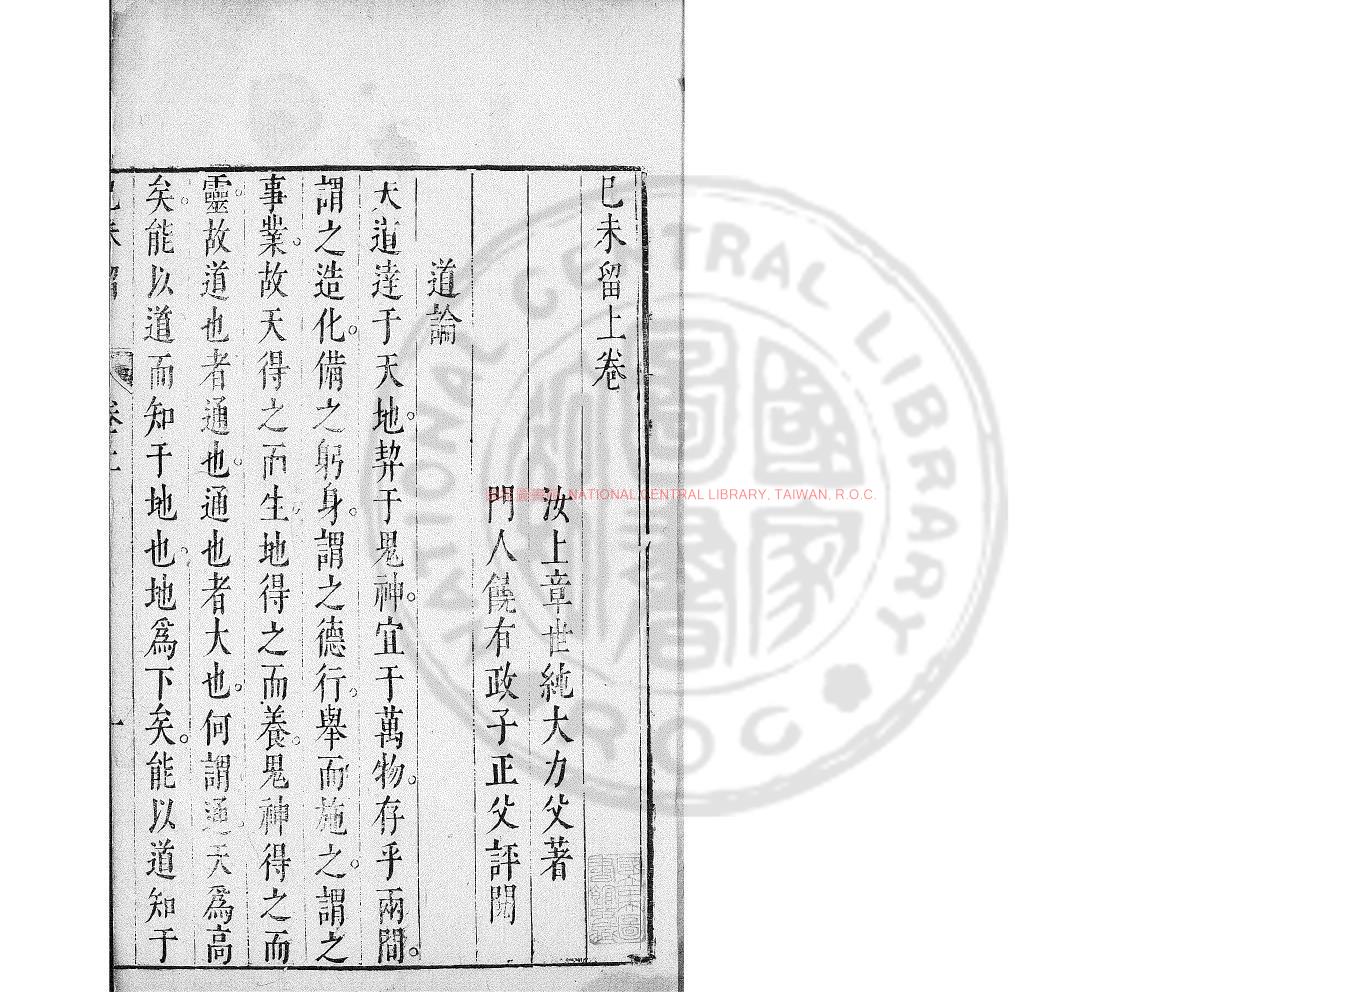 已未留上卷
汝上章世純大力父著
門人饒有政子正父評閱
道論
天道達于天地。契于鬼神。宜于萬物。存乎兩間。
謂之造化。備之躬身。謂之德行。舉而施之。謂之
事業。故天得之而生。地得之而養。鬼神得之而
靈。故道也者通也。通也者大也。何謂通。天爲高
矣。能以道而知于地也。地爲下矣。能以道知于
NATIONAL CENTRAL LIBRARY, TAIWAN, R.O.C.
NATIONAL CENTRAL LIBRARY
R O C
國家圖書館